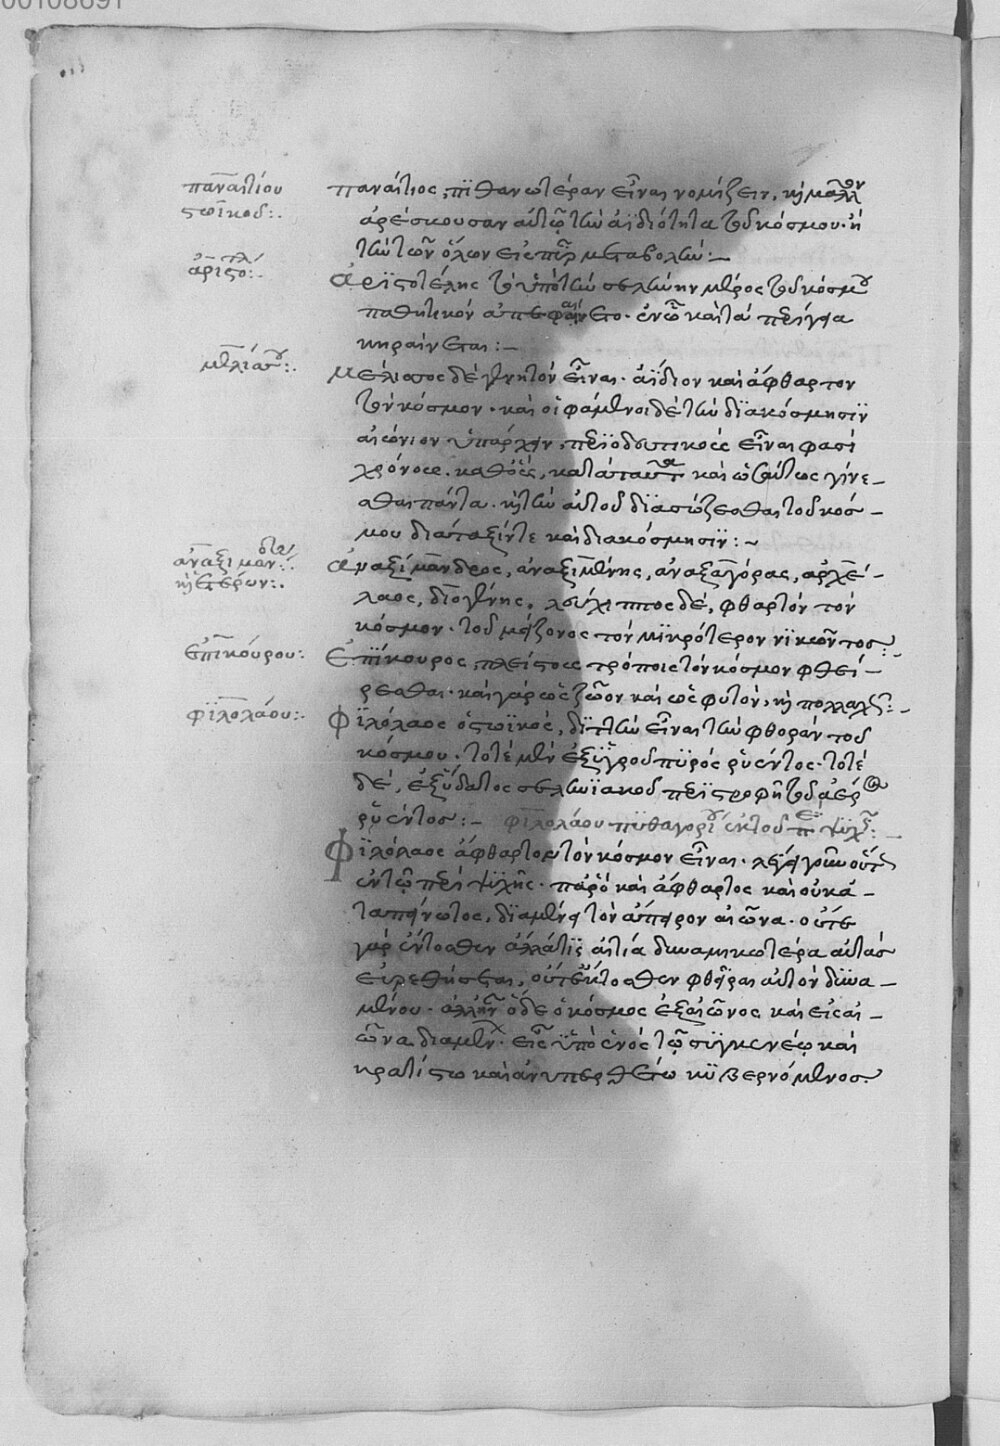 00108691
παναιτίου
στωϊκοῦ:.
παναίτιος, πϊθανωτέραν εἶναι νομίζει, κ μᾶλλον
ἀρέσκουσαν αὐτῷ τὴν ἀϊδιότητα τοῦ κόσμου· ἢ
τὴν τῶν ὅλων εἰς πῦρ μεταβολήν:–
ἀριστο:.
Ἀρϊστοτέλης τὸ ὑπὸ τὴν σελήνην μέρος τοῦ κόσμου
παθητικὸν ἀπεφαίνετο· ἐν ᾧ καὶ τὰ περίγεια
κηραίνεται:–
μελίσσου:.
Μέλισσος δὲ γενητὸν εἶναι· ἀΐδιον καὶ ἄφθαρτον
τὸν κόσμον· καὶ οἱ φάμενοι δὲ τὴν δϊακόσμησϊν
αἰώνιον ὑπάρχειν, περϊοδευτικοὺς εἶναι φασὶ
χρόνους. καθ' οὓς, κατὰ ταυτὰ καὶ ὡσαύτως γίνε–
σθαι πάντα· κ τὴν αὐτοῦ δϊασώζεσθαι τοῦ κόσ–
μου διάταξίν τε καὶ διακόσμησϊν:~
ἀναξιμάνδρου:.
κ ἑτέρων:.
Ἀναξίμανδρος, ἀναξϊμένης, ἀναξαγόρας, ἀρχέ–
λαος, δϊογένης, λεύκιππος δὲ, φθαρτὸν τὸν
κόσμον· τοῦ μείζονος τὸν μϊκρότερον νϊκῶντος:–
ἐπϊκούρου:.
Ἐπϊκουρος, πλείστοις τρόποις τὸν κόσμον φθεί–
ρεσθαι· καὶ γὰρ ὡς ζῶον καὶ ὡς φυτὸν, κ πολλαχῶς:–
φϊλολάου:.
Φϊλόλαος ὁ στωϊκὸς, δϊττὴν εἶναι τὴν φθορὰν τοῦ
κόσμου· τοτὲ μὲν ἐξ ὑγροῦ πϋρὸς ῥϋέντος· τοτὲ
δὲ, ἐξ ὕδατος σεληνϊακοῦ περϊστροφῇ τοῦ ἀέρος
ῥϋέντος:– φϊλολάου πϋθαγορείου ἐκ τοῦ περὶ ψϋχῆς:–
Φϊλόλαος ἄφθαρτον τὸν κόσμον εἶναι· λέγει γοῦν οὕτως
ἐν τῷ περὶ ψϋχῆς· παρὸ καὶ ἄφθαρτος καὶ οὐκα–
ταπείνωτος, δϊαμένει τὸν ἄπειρον αἰῶνα· οὔτε
γὰρ ἔντοσθεν ἄλλα τϊς αἰτία δυναμικωτέρα αὐτᾶς
εὑρεθήσεται, οὔτ' ἔκτοσθεν φθεῖραι αὐτὸν δϋνα–
μένου· ἀλλ' ἦν ὅδε ὁ κόσμος ἐξ αἰῶνος καὶ εἰς αἰ–
ῶνα διαμένει· εἷς ὑπὸ ἑνὸς τῷ σϋγγενέῳ καὶ
κρατίστω καὶ ἀνυπερθέτω κϋβερνόμενος.